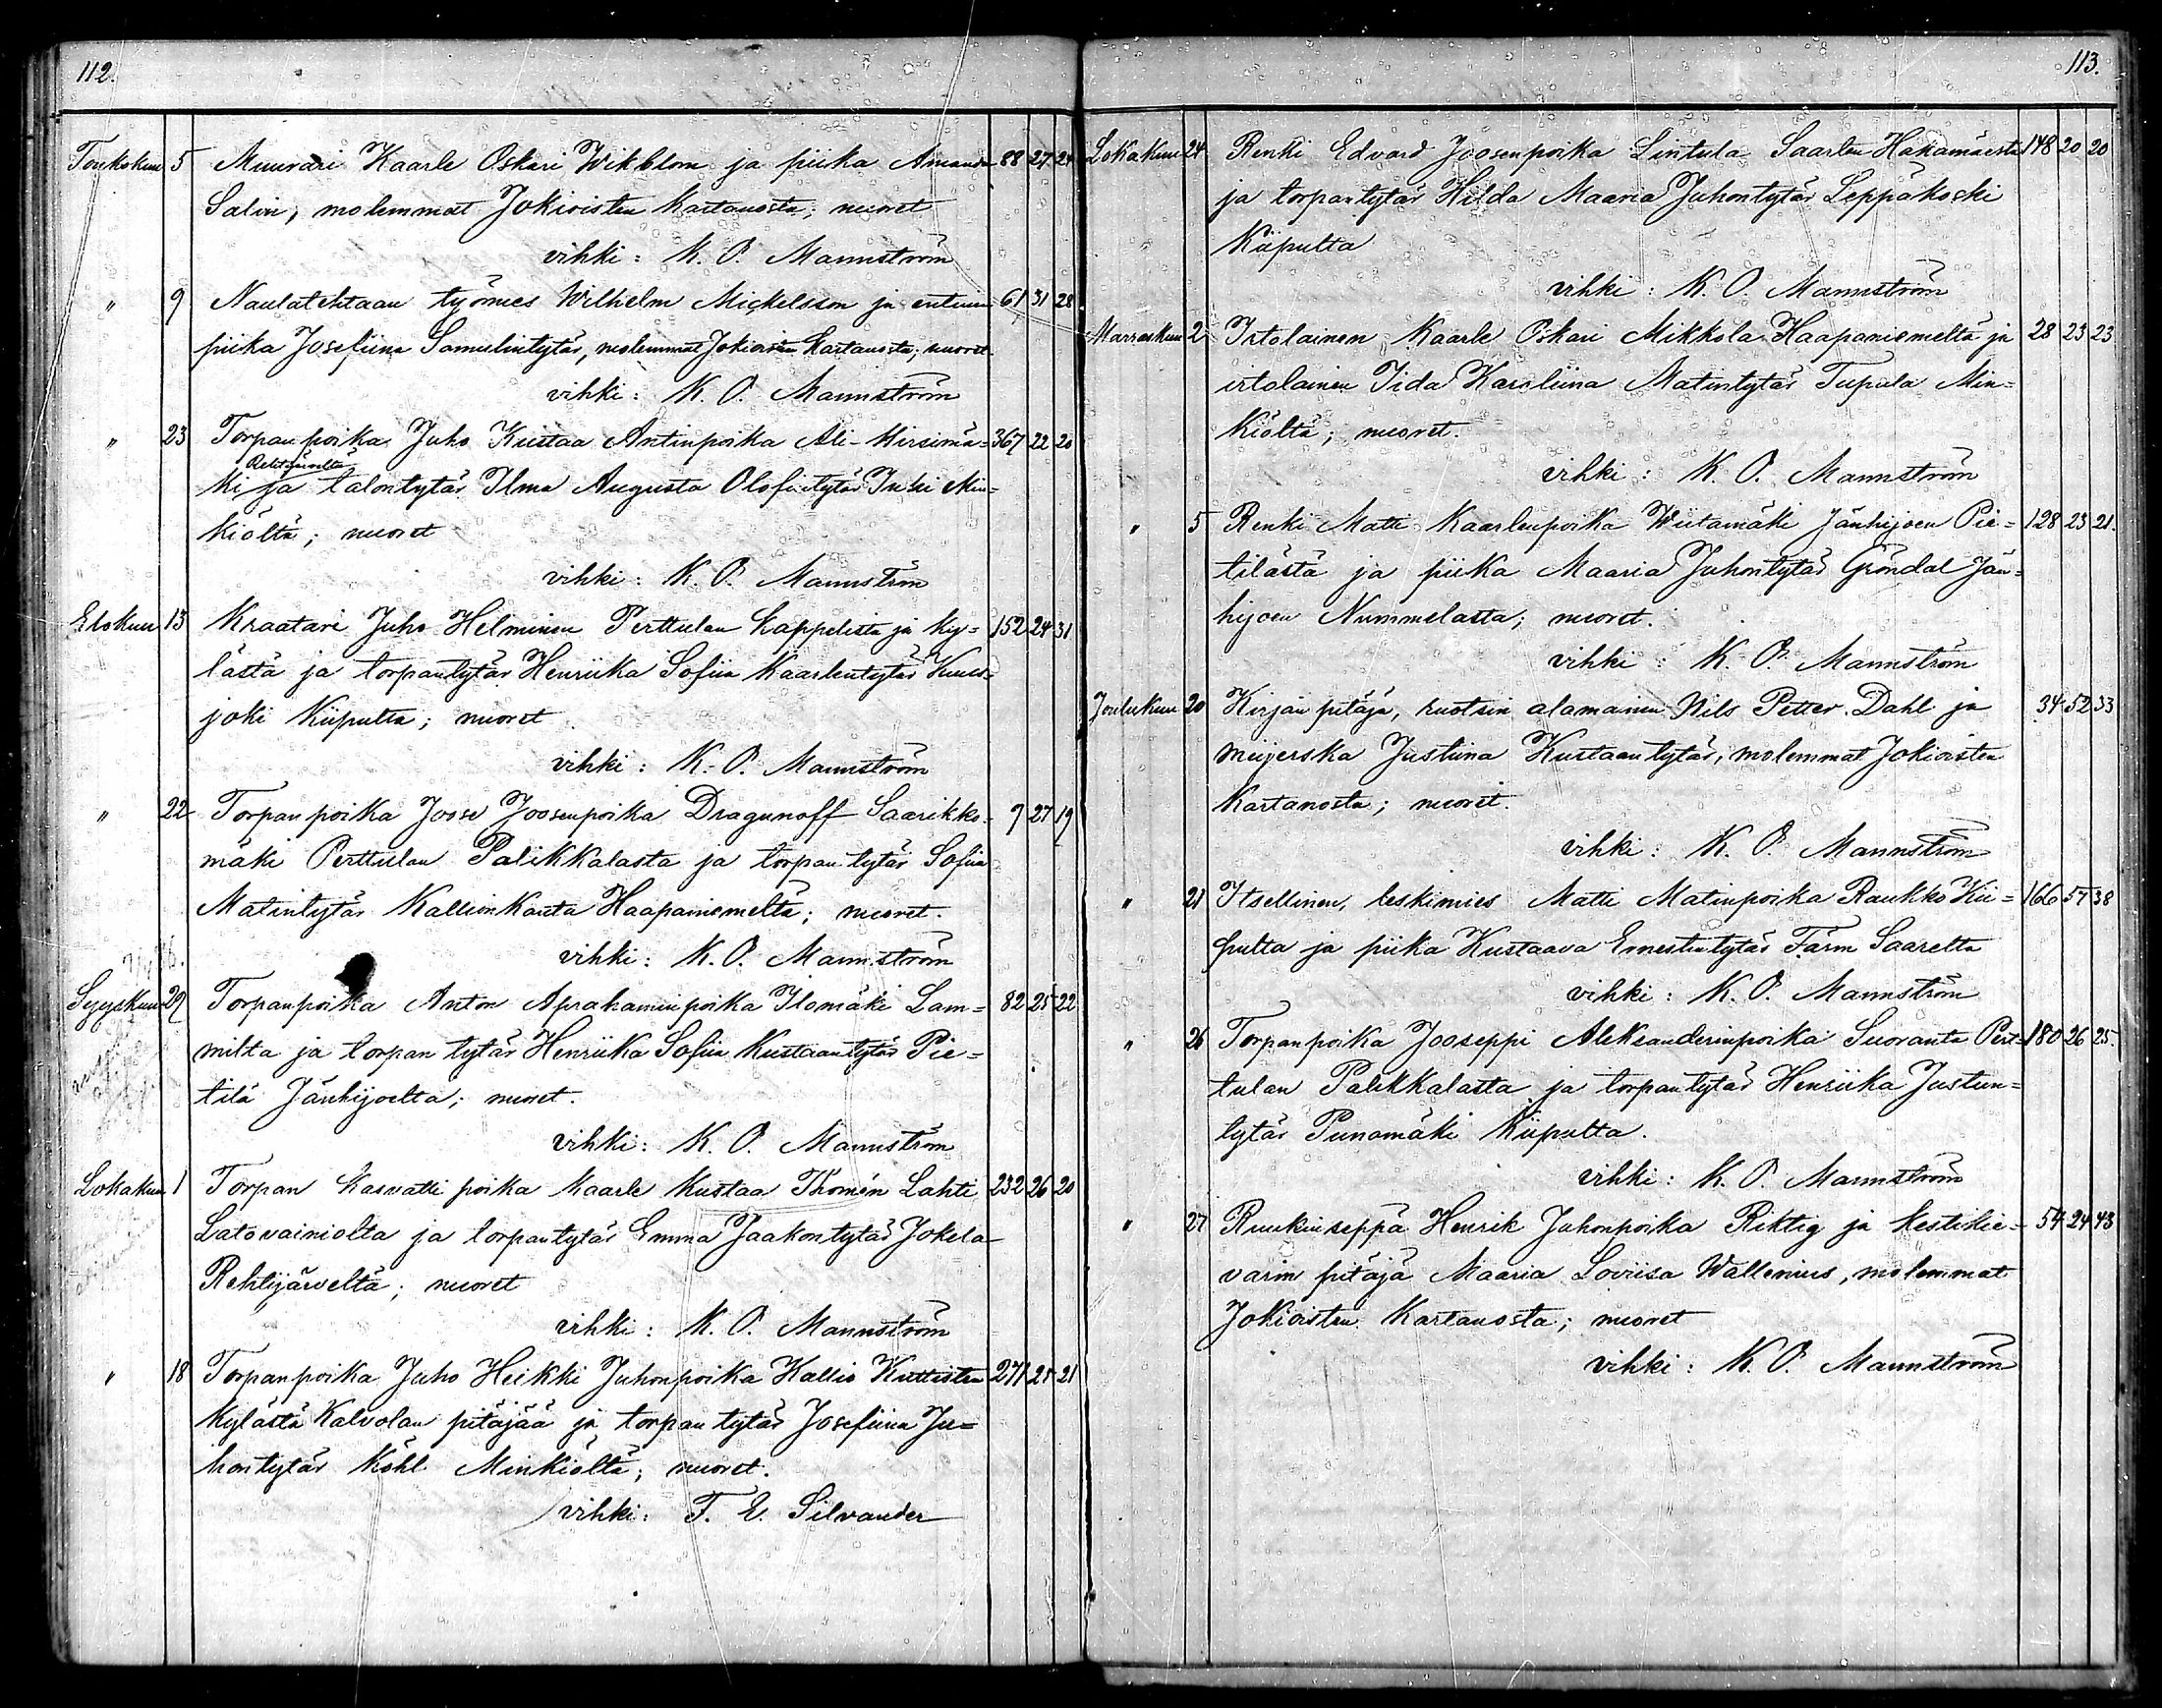 112.
Toukokuu 5 Muurari Kaarle Oskari Wikblom ja piika Amanda 88 27 24
Salin, molemmat Jokioisten kartanosta; nuoret
vihki: K. O. Mannström
" 9 Naulatehtaan työmies Wilhelm Mickelsson ja entinen 61 31 28
piika Josefiina Samulintytär, molemmat Jokioisten kartanosta; nuoret.
vihki: K. O. Mannström
" 23 Torpanpoika Juho Kustaa Antinpoika Ali-Hirsimä= 367 22 20
Rehtijärveltä
ki ja talontytär Ilma Augusta Olofintytär Min=
kiöltä; nuoret
vihki: K. O. Mannström
Elokuu 13 Kraatari Juho Helminen Perttulan kappelista ja ky= 152 24 31
lästä ja torpantytär Henriika Sofiia Kaarlentytär Kuus=
joki Kiipulta; nuoret.
vihki: K. O. Mannström
" 22 Torpanpoika Joose Joosenpoika Dragunoff Saarikko- 9 27 19
mäki Perttulan Palikkalasta ja torpantytär Sofiia
Matintytär Kallionkanta Haapaniemeltä; nuoret.
vihki: K. O. Mannström
Syyskuu 29 Torpanpoika Anton Aprahaminpoika Ilomäki Lam= 82 25 22
milta ja torpantytär Henriika Sofiia Kustaantytär Pie=
tilä Jänhijoelta; nuoret.
vihki: K. O. Mannström
Lokakuu 1 Torpan kasvattipoika Kaarle Kustaa Thomén Lahti 232 26 20
Latovainiolta ja torpantytär Emma Jaakontytär Jokela
Rehtijärveltä; nuoret
vihki: K. O. Mannström
" 18 Torpanpoika Juho Heikki Juhonpoika Kallio Kuttisten 271 25 21
kylästä Kalvolan pitäjää ja torpantytär Josefiina Ju=
hontytärKöhl Minkiöltä; nuoret.
vihki: F. E. Silvander
113.
Lokakuu 24 Renki Edvard Joosenpoika Lintula Saarlan Hakamäestä 148 20 20
ja torpantytär Hilda Maaria Juhontytär Leppäkoski
Kiipulta
vihki: K. O. Mannström
Marraskuu 2 Irtolainen Kaarle Oskari Mikkola Haapaniemeltä ja 28 23 23
irtolainen Iida Karoliina Matintytär Tupula Min=
kiöltä; nuoret.
vihki: K. O. Mannström
" 5 Renki Matti Kaarlenpoika Wiitamäki Jänhijoen Pie= 128 23 21.
tilästä ja piika Maaria Juhontytär Gröndal Jän=
hijoen Nummelasta; nuoret.
vihki: K. O. Mannström
Joulukuu 20 Kirjanpitäjä, ruotsin alamainen Nils Petter Dahl ja 34 52 33
meijerska Justiina Kustaantytär, molemmat Jokioisten
kartanosta; nuoret.
vihki: K. O. Mannström
" 21 Itsellinen, leskimies Matti Matinpoika Raukko Kii= 166 57 38
pulta ja piika Kustaava Ernestintytär Färm Saarelta
vihki: K. O. Mannström
" 26 Torpanpoika Jooseppi Aleksanderinpoika Suoranta Pert= 180 26 25.
tulan Palikkalasta ja torpantytär Henriika Justun=
tytär Punamäki Kiipulta.
vihki: K. O. Mannström
" 27 Ruukinseppä Henrik Juhonpoika Riktig ja kestikie= 54 24 43
varin pitäjä Maaria Loviisa Wallenius, molemmat
Jokioisten kartanosta; nuoret
vihki: K. O. Mannström